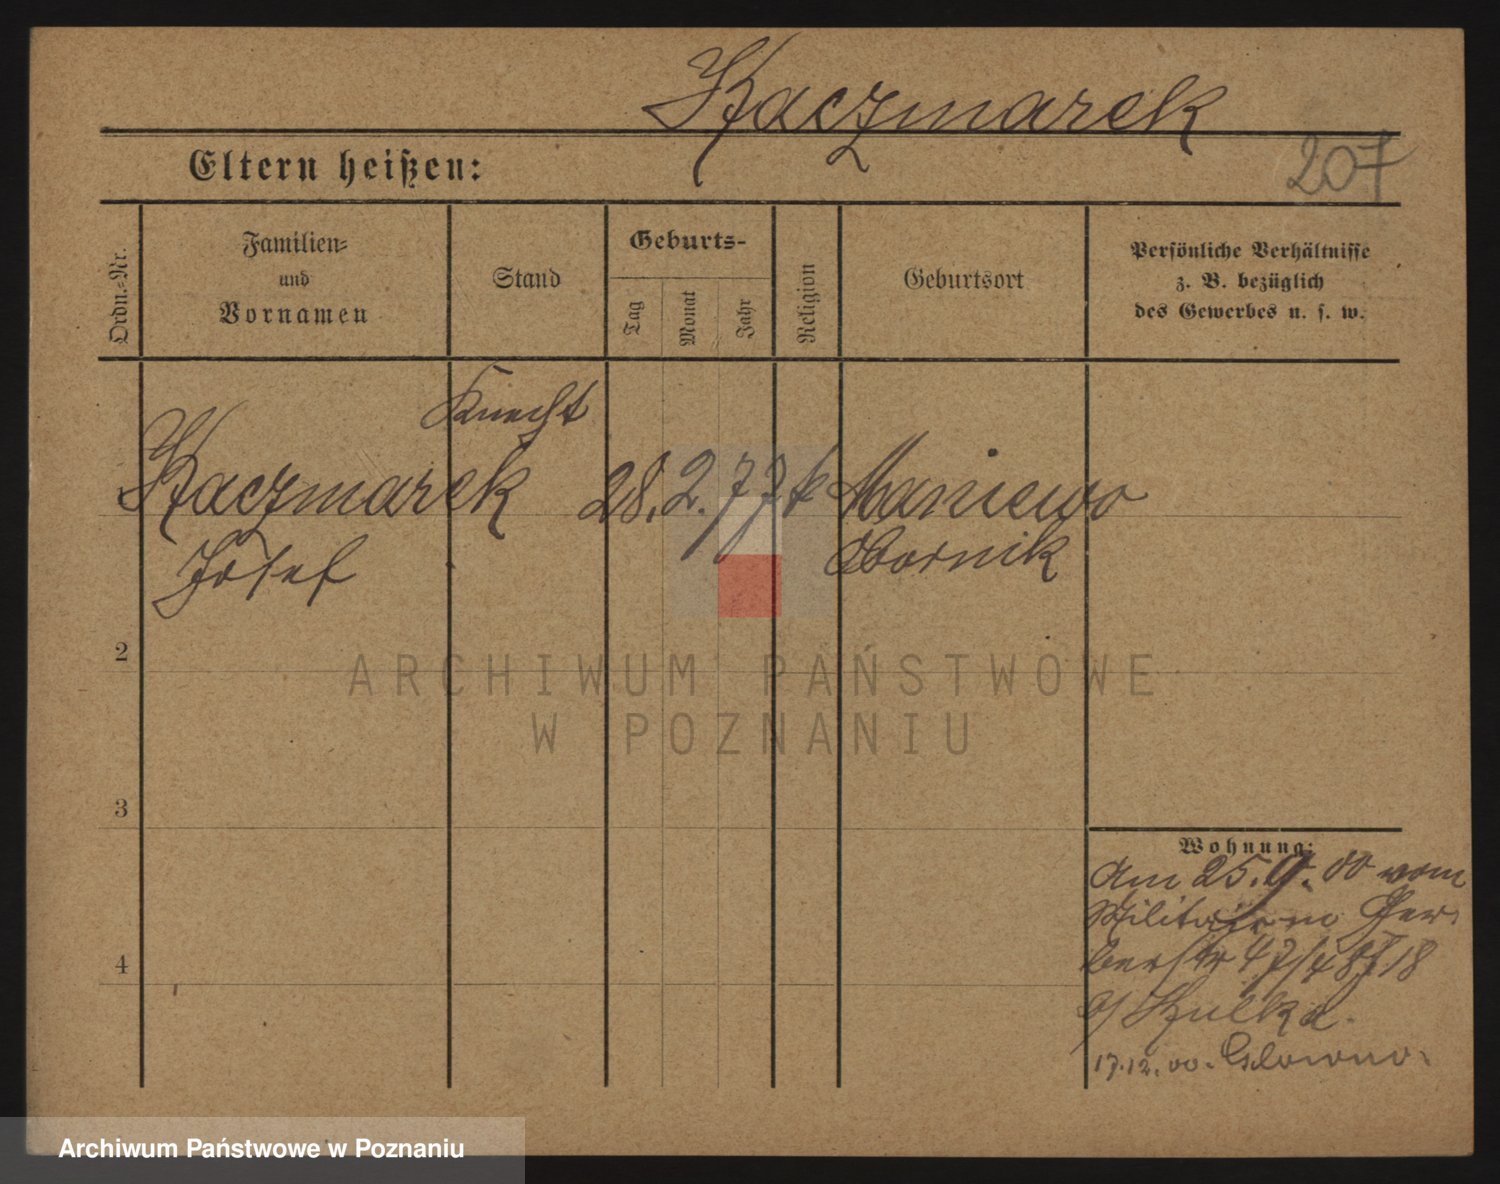 Kaczmarek
207
Eltern heißen:
Ordn.=Nr.
Familien=
und
Vornamen
Stand
Geburts-
Tag
Monat
Jahr
Religion
Geburtsort
Persönliche Verhältnisse
z. B. bezüglich
des Gewerbes u. s. w.
Knecht
Kaczmarek 28. 2. 77 k Maniewo
Josef Obornik
2
3
4
Wohnung:
Am 25. 9. 00 vom
Militär Ger
berstr 47/48
b/ Szulka.
17.12.00. Glowno.
ARCHIWUM PAŃSTWOWE
W POZNANIU
Archiwum Państwowe w Poznaniu